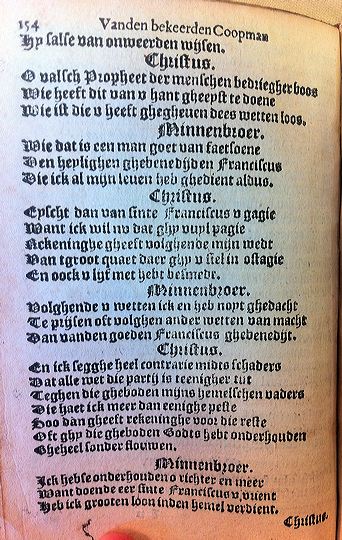 154 Vanden bekeerden Coopman
Hy salse van onweerden wijsen.
Christus.
O valsch Propheet der menschen bedriegher boos
Wie heeft dit van v hant gheeyst te doene
Wie ist die v heeft ghegheuen dees wetten loos.
Minnenbroer.
Wie dat is een man goet van faetsoene
Den heylighen ghebenedijden Franciscus
Die ick al mijn leuen heb ghedient aldus.
Christus.
Eyscht dan van sinte Franciscus v gagie
Want ick wil nv dat ghy vuyl pagie
Rekeninghe gheeft volghende mijn wedt
Van tgroot quaet daer ghy v siel in ostagie
En oock v lijf met hebt besmedt.
Minnenbroer.
Volghende v wetten ick en heb noyt ghedacht
Te prijsen oft volghen ander wetten van macht
Dan vanden goeden Franciscus ghebenedijt.
Christus.
En ick segghe heel contrarie midts schaders
Dat alle wet die partij is teenigher tijt
Teghen die gheboden mijns hemelschen vaders
Die haet ick meer dan eenighe peste
Soo dan gheeft rekeninghe voor die reste
Oft ghy die gheboden Godts hebt onderhouden
Gheheel sonder flouwen.
Minnenbroer.
Ick hebse onderhouden o richter en meer
Want doende eer sinte Franciscus v vrient
Heb ick grooten loon inden hemel verdient.
Christus.